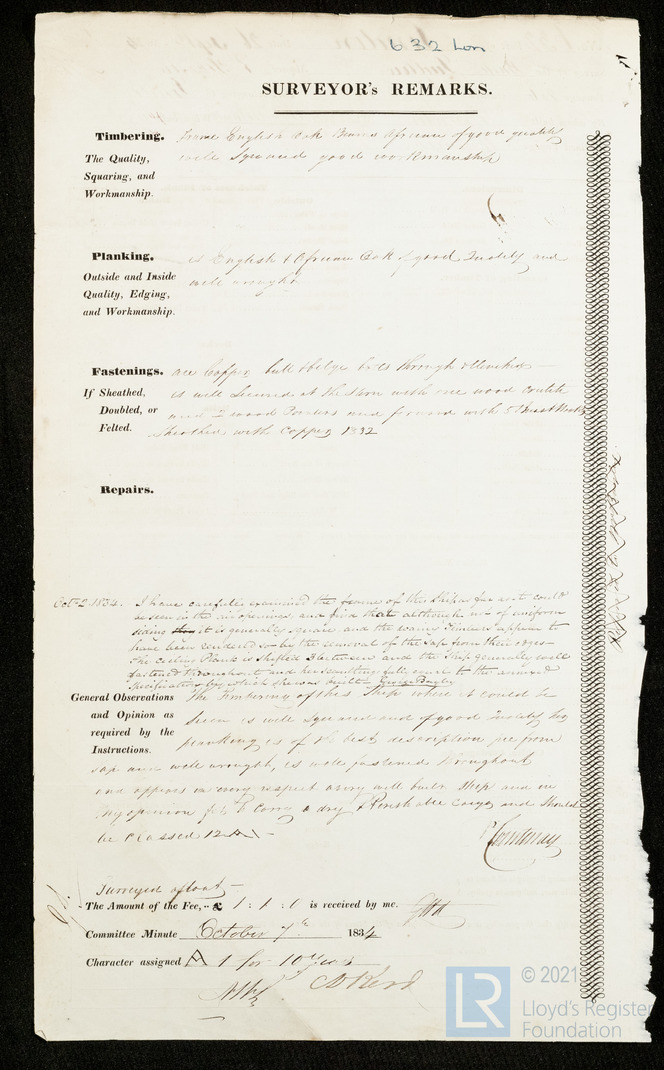 632 Lon
SURVEYOR's REMARKS.
Timbering. Frame English Oak Beams African of good quality
The Quality, well Squared good workmanship
Squaring, and
Workmanship.
Planking. is English & African Oak of good Quality and
Outside and Inside well wrought
Quality, Edging,
and Workmanship.
Fastenings. are Copper butt & bilge bolts through &
If Sheathed, is well Secured at the with one wood
Doubled, or and 2 wood and forward with 5
Felted. Sheathed with Copper 1832
Repairs.
Oct 2 1834. I have carefully examined the frame of this Ship as far as it could
be seen in the air openings, and find that although not of uniform
siding it is generally square and the wains Timbers appear to
have been rendered so by the removal of the sap from their edges
The ceiling Plank is shifted between and the Ship generally well
fastened throughout and her scantling fully equal to the annexed
specification by which she was built George Bayley
General Observations
and Opinion as
required by the
Instructions.
The Timbering of this Ship where it could be
seen is well Squared and of good Quality her
planking is of the best description free from
sap and well wrought, is well fastened throughout
and appears in every respect a very well built Ship and in
my opinion fit to Carry a dry & Perishable Cargo and Should
be Classed 12 A 1 -
P Courtenay
Surveyed afloat
The Amount of the Fee,.. £ 1 : 1 : 0 is received by me.
Committee Minute October 7th 1834
Character assigned A 1 for 10 Years
LR © 2021
Lloyd's Register
Foundation